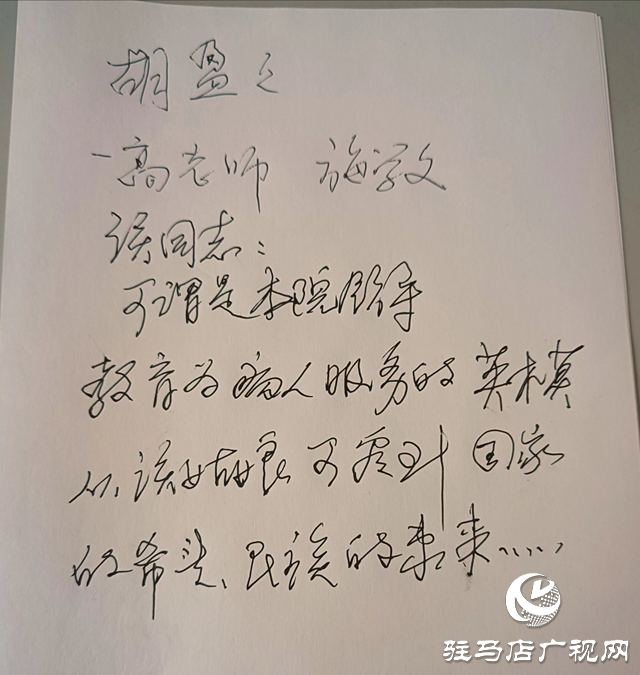 胡盈之
一高老师 施学文
该同志：
可谓是本院
教育为病人服务的英模
从该姑娘可看到国家
的希望、民族的未来……
驻马店广视网